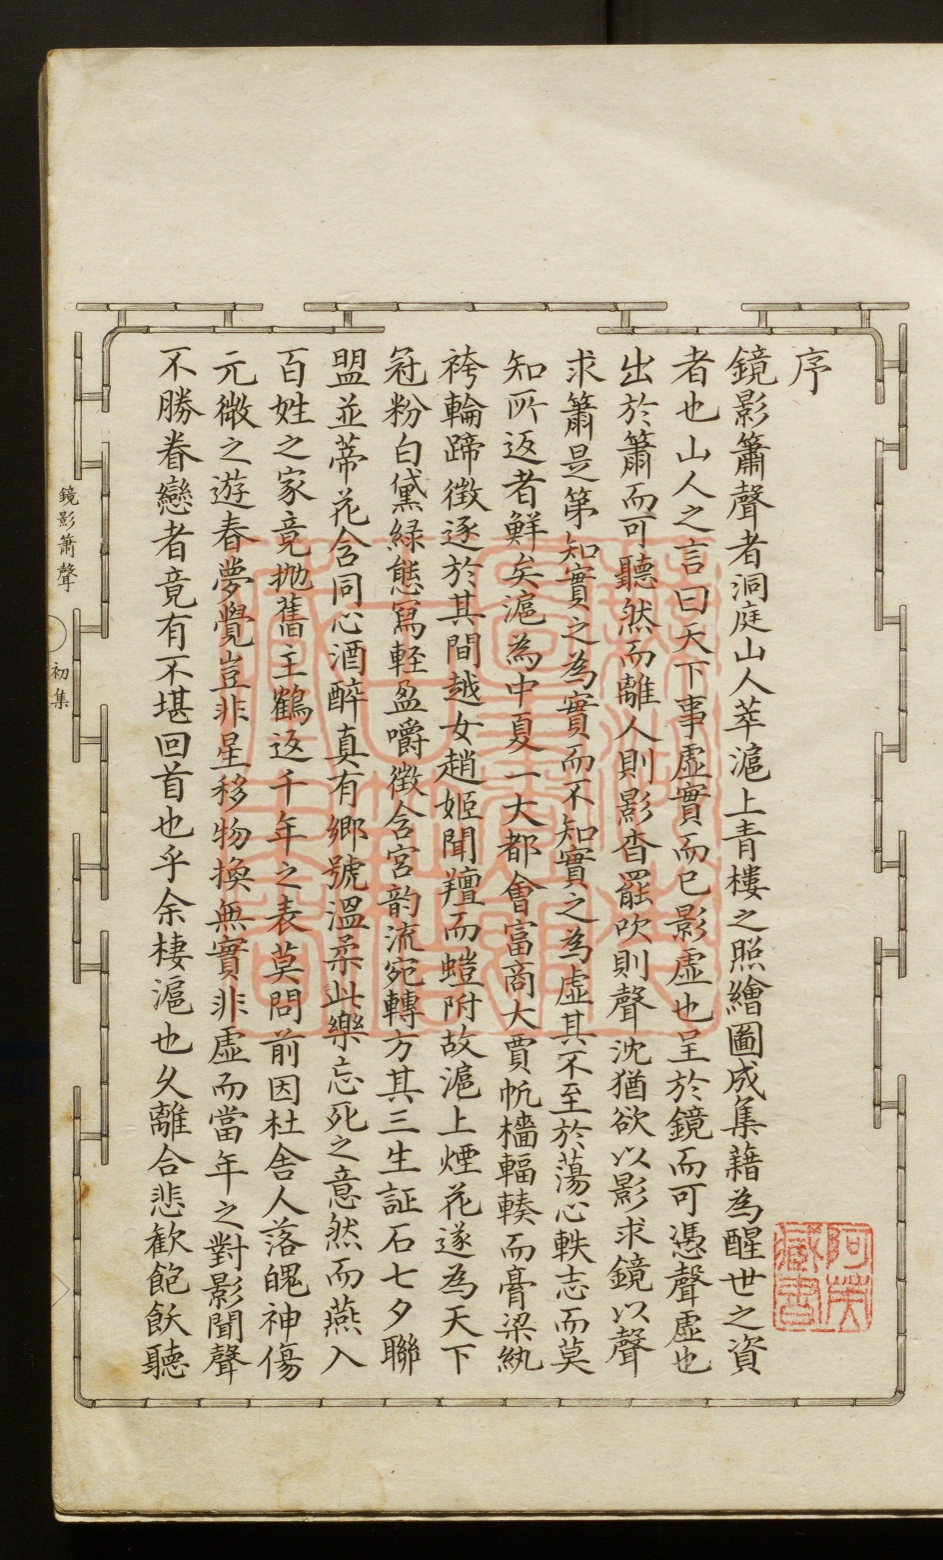 序
鏡影簫聲者洞庭山人萃滬上青樓之照繪圖成集藉為醒世之資
者也山人之言曰天下事虛實而已影虛也呈於鏡而可憑聲虛也
出於簫而可聽然而離人則影杳罷吹則聲沈猶欲以影求鏡以聲
求簫是第知實之為實而不知實之為虛其不至於蕩心軼志而莫
知所返者鮮矣滬為中夏一大都會富商大賈帆檣輻輳而膏粱紈
袴輪蹄徵逐於其間越女趙姬聞羶而螘附故滬上煙花遂為天下
冠粉白黛綠態寫輕盈嚼徵含宮韵流宛轉方其三生証石七夕聯
盟並蒂花含同心酒醉真有鄉號溫柔此樂忘死之意然而燕入
百姓之家竟拋舊主鶴返千年之表莫問前因杜舍人落魄神傷
元微之遊春夢覺豈非星移物換無實非虛而當年之對影聞聲
不勝眷戀者竟有不堪回首也乎余棲滬也久離合悲歡飽飫聽
鏡影簫聲
初集